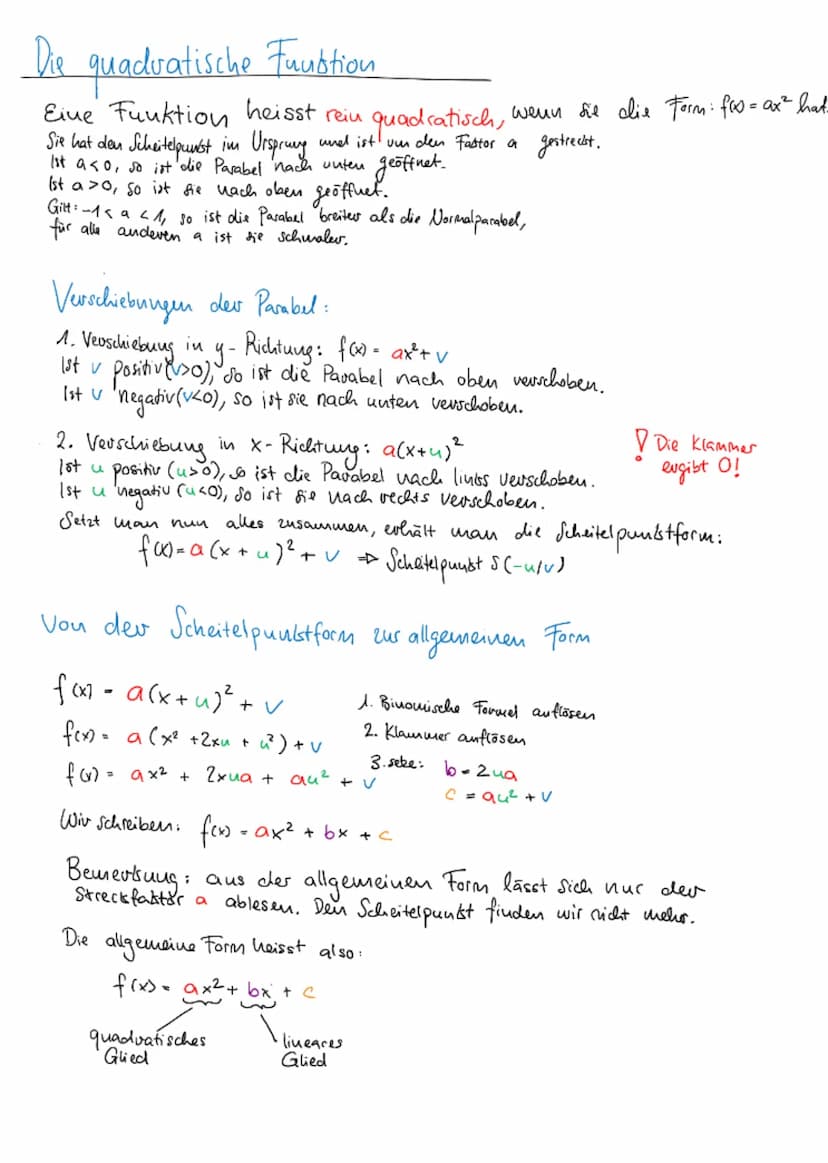 Die quadratische Funktion
Eine Funktion heisst rein quadratisch, wenn sie die Form: f(x) = ax² hat.
Sie hat den Scheitelpunkt im Ursprung und ist um den Faktor a gestreckt.
Ist a<0, so ist die Parabel nach unten geöffnet.
Ist a>0, so ist sie nach oben geöffnet.
Gilt: -1 < a < 1, so ist die Parabel breiter als die Normalparabel,
für alle anderen a ist sie schmaler.
Verschiebungen der Parabel:
1. Verschiebung in y-Richtung: f(x) = ax² + v
Ist v positiv (v>0), so ist die Parabel nach oben verschoben.
Ist v negativ (v<0), so ist sie nach unten verschoben.
2. Verschiebung in x-Richtung: a(x+u)²
! Die Klammer
ergibt 0!
Ist u positiv (u>0), so ist die Parabel nach links verschoben.
Ist u negativ (u<0), so ist sie nach rechts verschoben.
Setzt man nun alles zusammen, erhält man die Scheitelpunktform:
f(x) = a(x + u)² + v ⇒ Scheitelpunkt S(-u/v)
Von der Scheitelpunktform zur allgemeinen Form
f(x) = a(x+u)² + v
1. Binomische Formel auflösen
f(x) = a(x² + 2xu + u²) + v
2. Klammer auflösen
f(x) = ax² + 2xua + au² + v
3. setze: b = 2ua
c = au² + v
Wir schreiben: f(x) = ax² + bx + c
Bemerkung: aus der allgemeinen Form lässt sich nur der
Streckfaktor a ablesen. Den Scheitelpunkt finden wir nicht mehr.
Die allgemeine Form heisst also:
f(x) = ax² + bx + c
quadratisches
Glied
lineares
Glied